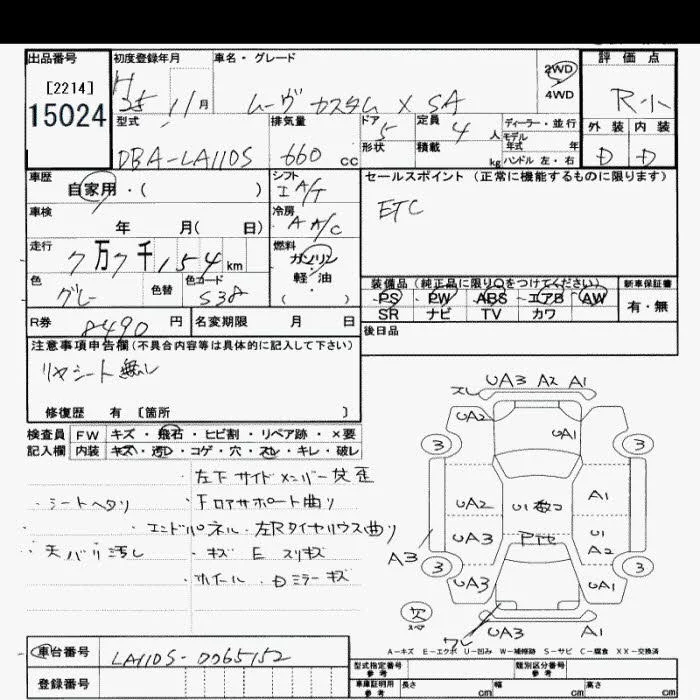 出品番号 初度登録年月 車名・グレード 評価点
[2214] H 2WD
15024 25 11月 ムーヴ カスタム X SA 4WD R-小
型式 排気量 ドア 5 定員 4人 ディーラー・並行 外装 内装
DBA-LA110S 660cc 形状 積載 kg モデル年式 年 ハンドル 左・右 D D
車歴 シフト セールスポイント (正常に機能するものに限ります)
自家用・( ) IA/T ETC
車検 冷房
年 月( 日) A A/C
走行 燃料
7万7千154km ガソリン
色 色替 色コード 軽・油 装備品 (純正品に限り○をつけてください) 新車保証書
グレー S38 ( ) PS PW ABS エアB AW 有・無
SR ナビ TV カワ
R券 8490円 名変期限 月 日 後日品
注意事項申告欄 (不具合内容等は具体的に記入して下さい)
リヤシート無し
修復歴 有 [箇所 ]
検査員 FW キズ・飛石・ヒビ割・リペア跡・×要
記入欄 内装 キズ・汚レ・コゲ・穴・スレ・キレ・破レ
・左下サイドメンバー
・シートヘタリ ・Fロアサポート曲り
・エンドパネル・左Rタイヤハウス曲り
・天バリ汚し ・キズ E スリキズ
・ホイール・Dミラーキズ
スレ UA3 A2 A1
UA2 UA1
3 3
UA2 U1 A1
UA3 U1
A3 A2
3 3
UA3 UA1
欠 スペア
ワレ UA3 A1
A-キズ E-エクボ U-凹み W-補修跡 S-サビ C-腐食 XX-交換済
車台番号 LA110S-0065152 型式指定番号 参考 類別区分番号 参考
登録番号 車庫証明用 参考 長さ cm 幅 cm 高さ cm